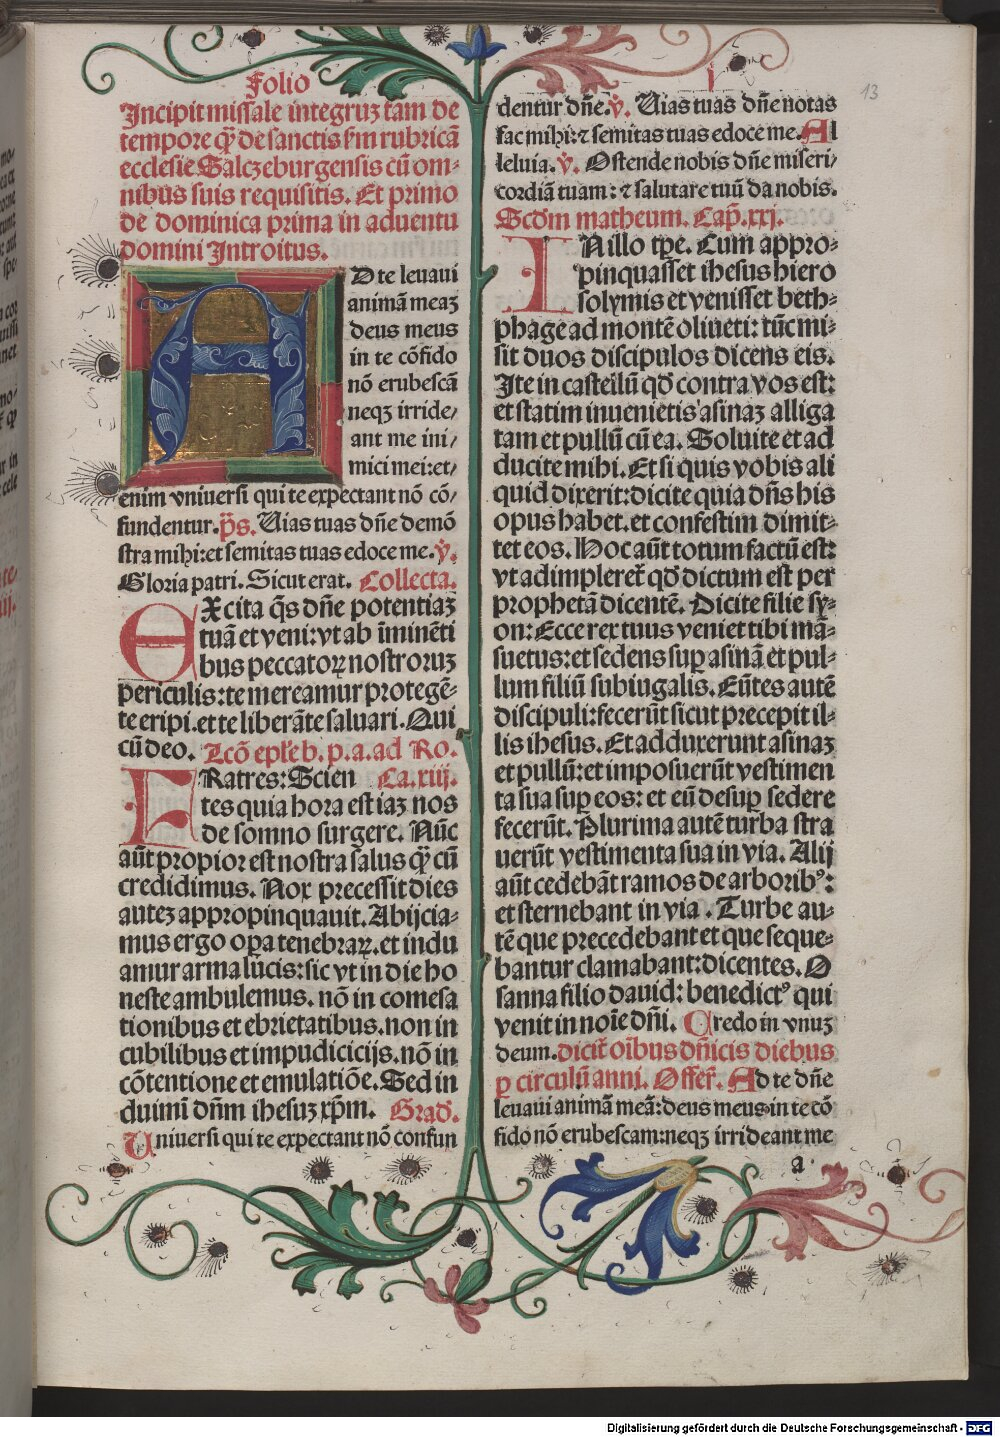 Folio
Incipit missale integruꝫ tam de
tempore qȝ de sanctis ẜm rubricā
ecclesie Salczeburgensis cū om-
nibus suis requisitis. Et primo
de dominica prima in aduentu
domini Introitus.
AD te leuaui
animā meaꝫ
deus meus
in te cōfido
nō erubescā
neqꝫ irride/
ant me ini/
mici mei: et/
enim vniuersi qui te expectant nō cō/
fundentur. p̄s. Uias tuas dn̄e demō
stra mihi: et semitas tuas edoce me. ℣.
Gloria patri. Sicut erat. Collecta.
EXcita q̄s dn̄e potentiaꝫ
tuā et veni: vt ab īminēti
bus peccatoꝝ nostroruꝫ
periculis: te mereamur protegē-
te eripi. et te liberāte saluari. Qui
cū deo. Lcō epl̄e b. p. a. ad Ro.
FRatres: Scien Ca. xiij.
tes quia hora est iaꝫ nos
de somno surgere. Nūc
aūt propior est nostra salus qȝ cū
credidimus. Nox precessit dies
auteꝫ appropinquauit. Abijcia-
mus ergo oꝑa tenebraꝝ. et indu
amur arma lucis: sic vt in die ho
neste ambulemus. nō in comesa
tionibus et ebrietatibus. non in
cubilibus et impudicicijs. nō in
cōtentione et emulatiōe. Sed in
duimī dn̄m ihesuꝫ xp̄m. Grad̄.
Uniuersi qui te expectant nō confun
I
13
dentur dn̄e. ℣. Uias tuas dn̄e notas
fac mihi: ⁊ semitas tuas edoce me. Al
leluia. ℣. Ostende nobis dn̄e miseri/
cordiā tuam: ⁊ salutare tuū da nobis.
Scd̄m matheum. Cap̄. xxj.
IN illo tp̄e. Cum appro-
pinquasset ihesus hiero
solymis et venisset beth-
phage ad montē oliueti: tūc mi-
sit duos discipulos dicens eis.
Ite in castellū qd̄ contra vos est:
et statim inuenietis asinaꝫ alliga
tam et pullū cū ea. Soluite et ad
ducite mihi. Et si quis vobis ali
quid dixerit: dicite quia dn̄s his
opus habet. et confestim dimit-
tet eos. Hoc aūt totum factū est:
vt adimpleret̄ qd̄ dictum est per
prophetā dicentē. Dicite filie sy-
on: Ecce rex tuus veniet tibi mā-
suetus: et sedens suꝑ asinā et pul-
lum filiū subiugalis. Eūtes autē
discipuli: fecerūt sicut precepit il-
lis ihesus. Et adduxerunt asinaꝫ
et pullū: et imposuerūt vestimen
ta sua suꝑ eos: et eū desuꝑ sedere
fecerūt. Plurima autē turba stra
uerūt vestimenta sua in via. Alij
aūt cedebāt ramos de arboribꝰ:
et sternebant in via. Turbe au-
tē que precedebant et que seque-
bantur clamabant: dicentes. O
sanna filio dauid: benedictꝰ qui
venit in noīe dn̄i. Credo in vnuꝫ
deum. dicit̄ oībus dn̄icis diebus
ꝑ circulū anni. Offer̄. Ad te dn̄e
leuaui animā meā: deus meus in te cō
fido nō erubescam: neqꝫ irrideant me
a.
Digitalisierung gefördert durch die Deutsche Forschungsgemeinschaft - DFG